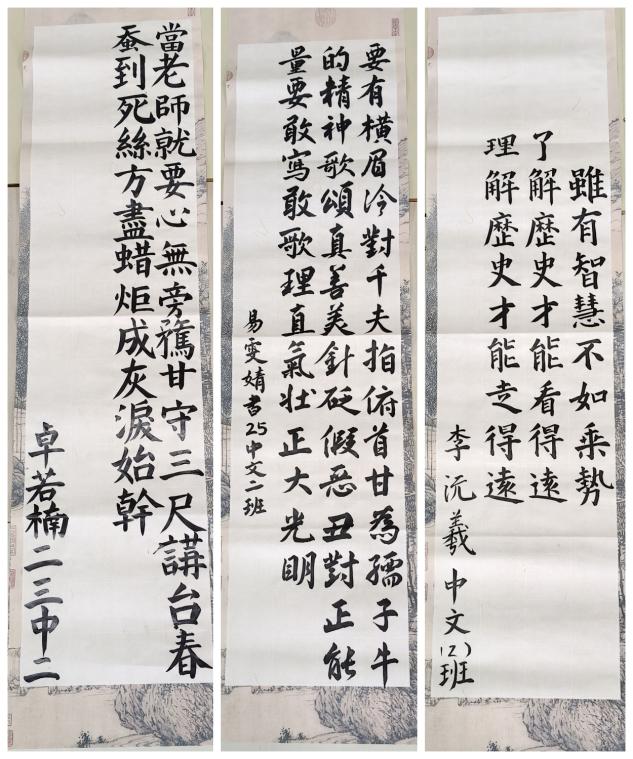 當老師就要心無旁騖甘守三尺講台春
蚕到死絲方盡蜡炬成灰淚始幹
卓若楠二三中二
要有橫眉冷對千夫指俯首甘為孺子牛
的精神歌頌真善美針砭假恶丑對正能
量要敢寫敢歌理直氣壯正大光明
易雯婧書25中文二班
雖有智慧不如乘勢
了解歷史才能看得遠
理解歷史才能走得遠
李沅羲中文(2)班